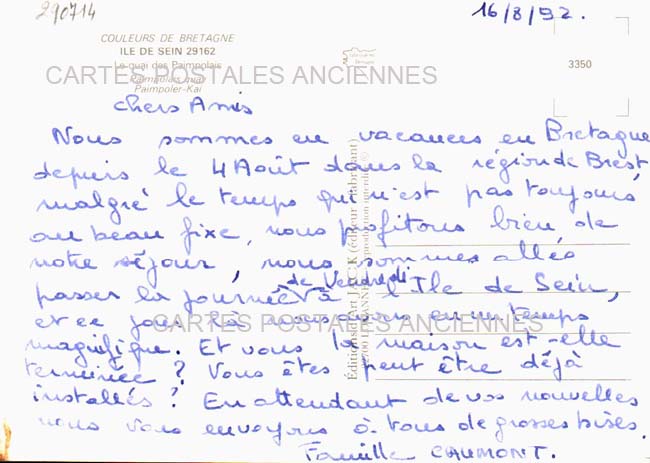 290714
16/8/92.
COULEURS DE BRETAGNE
ILE DE SEIN 29162
Le quai des Paimpolais
Paimpolais quay
Paimpoler-Kai
3350
CARTES POSTALES ANCIENNES
chers Amis
Nous sommes en vacances en Bretagne
depuis le 4 Août dans la région de Brest,
malgré le temps qui n'est pas toujours
au beau fixe, nous profitons bien de
notre séjour, nous sommes allés
passer la journée de Vendredi à l'Ile de Sein,
et ce jour là nous avons eu un temps
CARTES POSTALES ANCIENNES
magnifique. Et vous la maison est-elle
terminée ? Vous êtes peut être déjà
installés ? En attendant de vos nouvelles
nous vous envoyons à tous de grosses bises.
Famille CAUMONT.
Editions d'art JACK (éditeur fabricant)
reproduction interdite